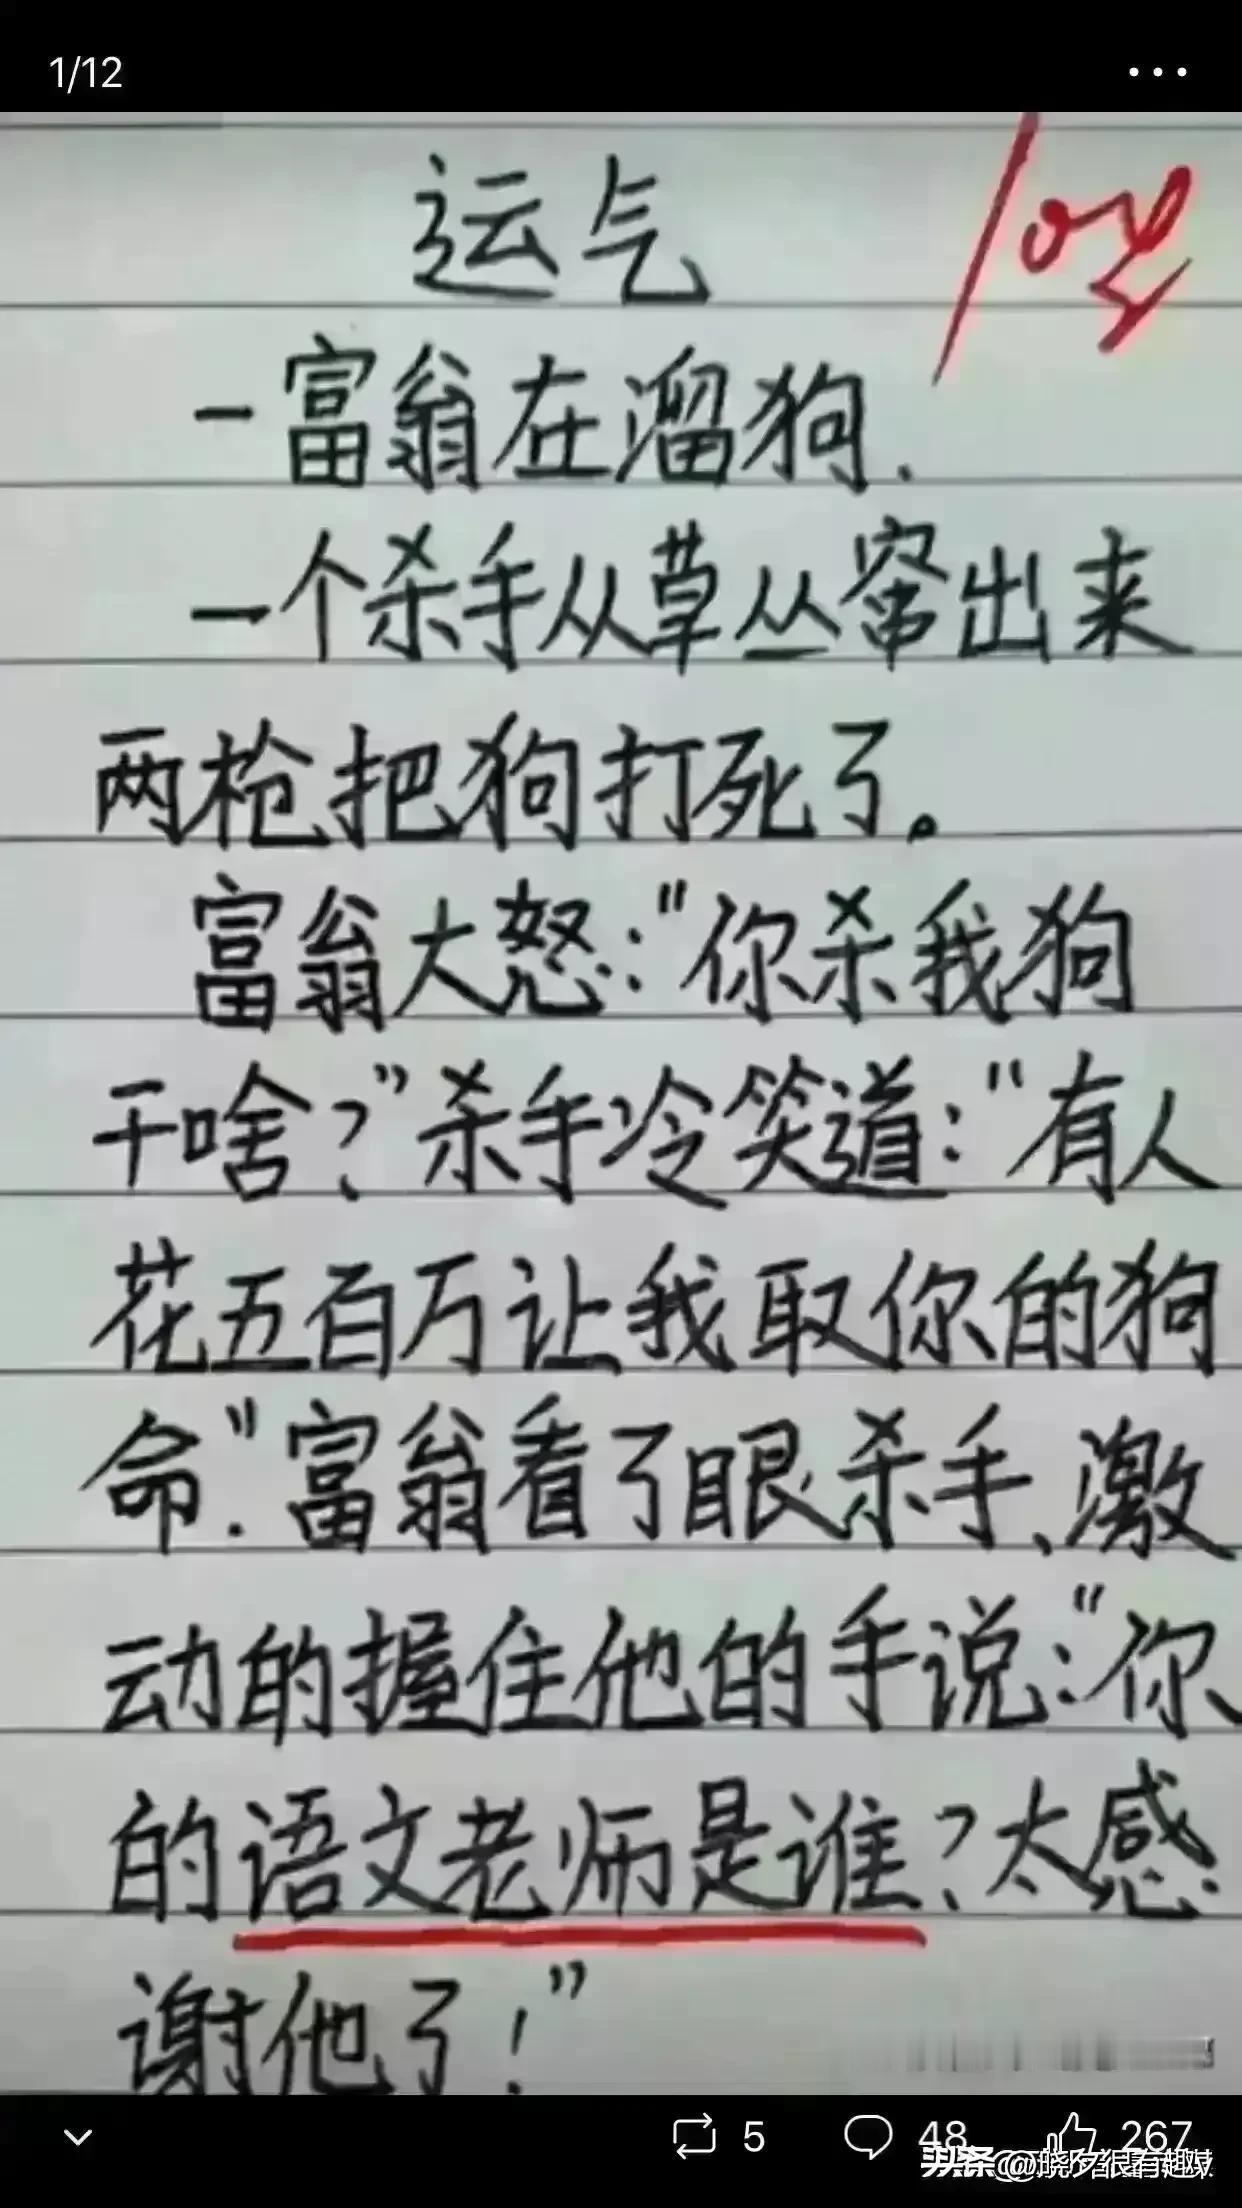 1/12
运气
一富翁在溜狗.
一个杀手从草丛窜出来
两枪把狗打死了。
富翁大怒:“你杀我狗
干啥?”杀手冷笑道:“有人
花五百万让我取你的狗
命”.富翁看了眼杀手、激
动的握住他的手说:“你
的语文老师是谁?太感
谢他了!”
5
48
267
头条